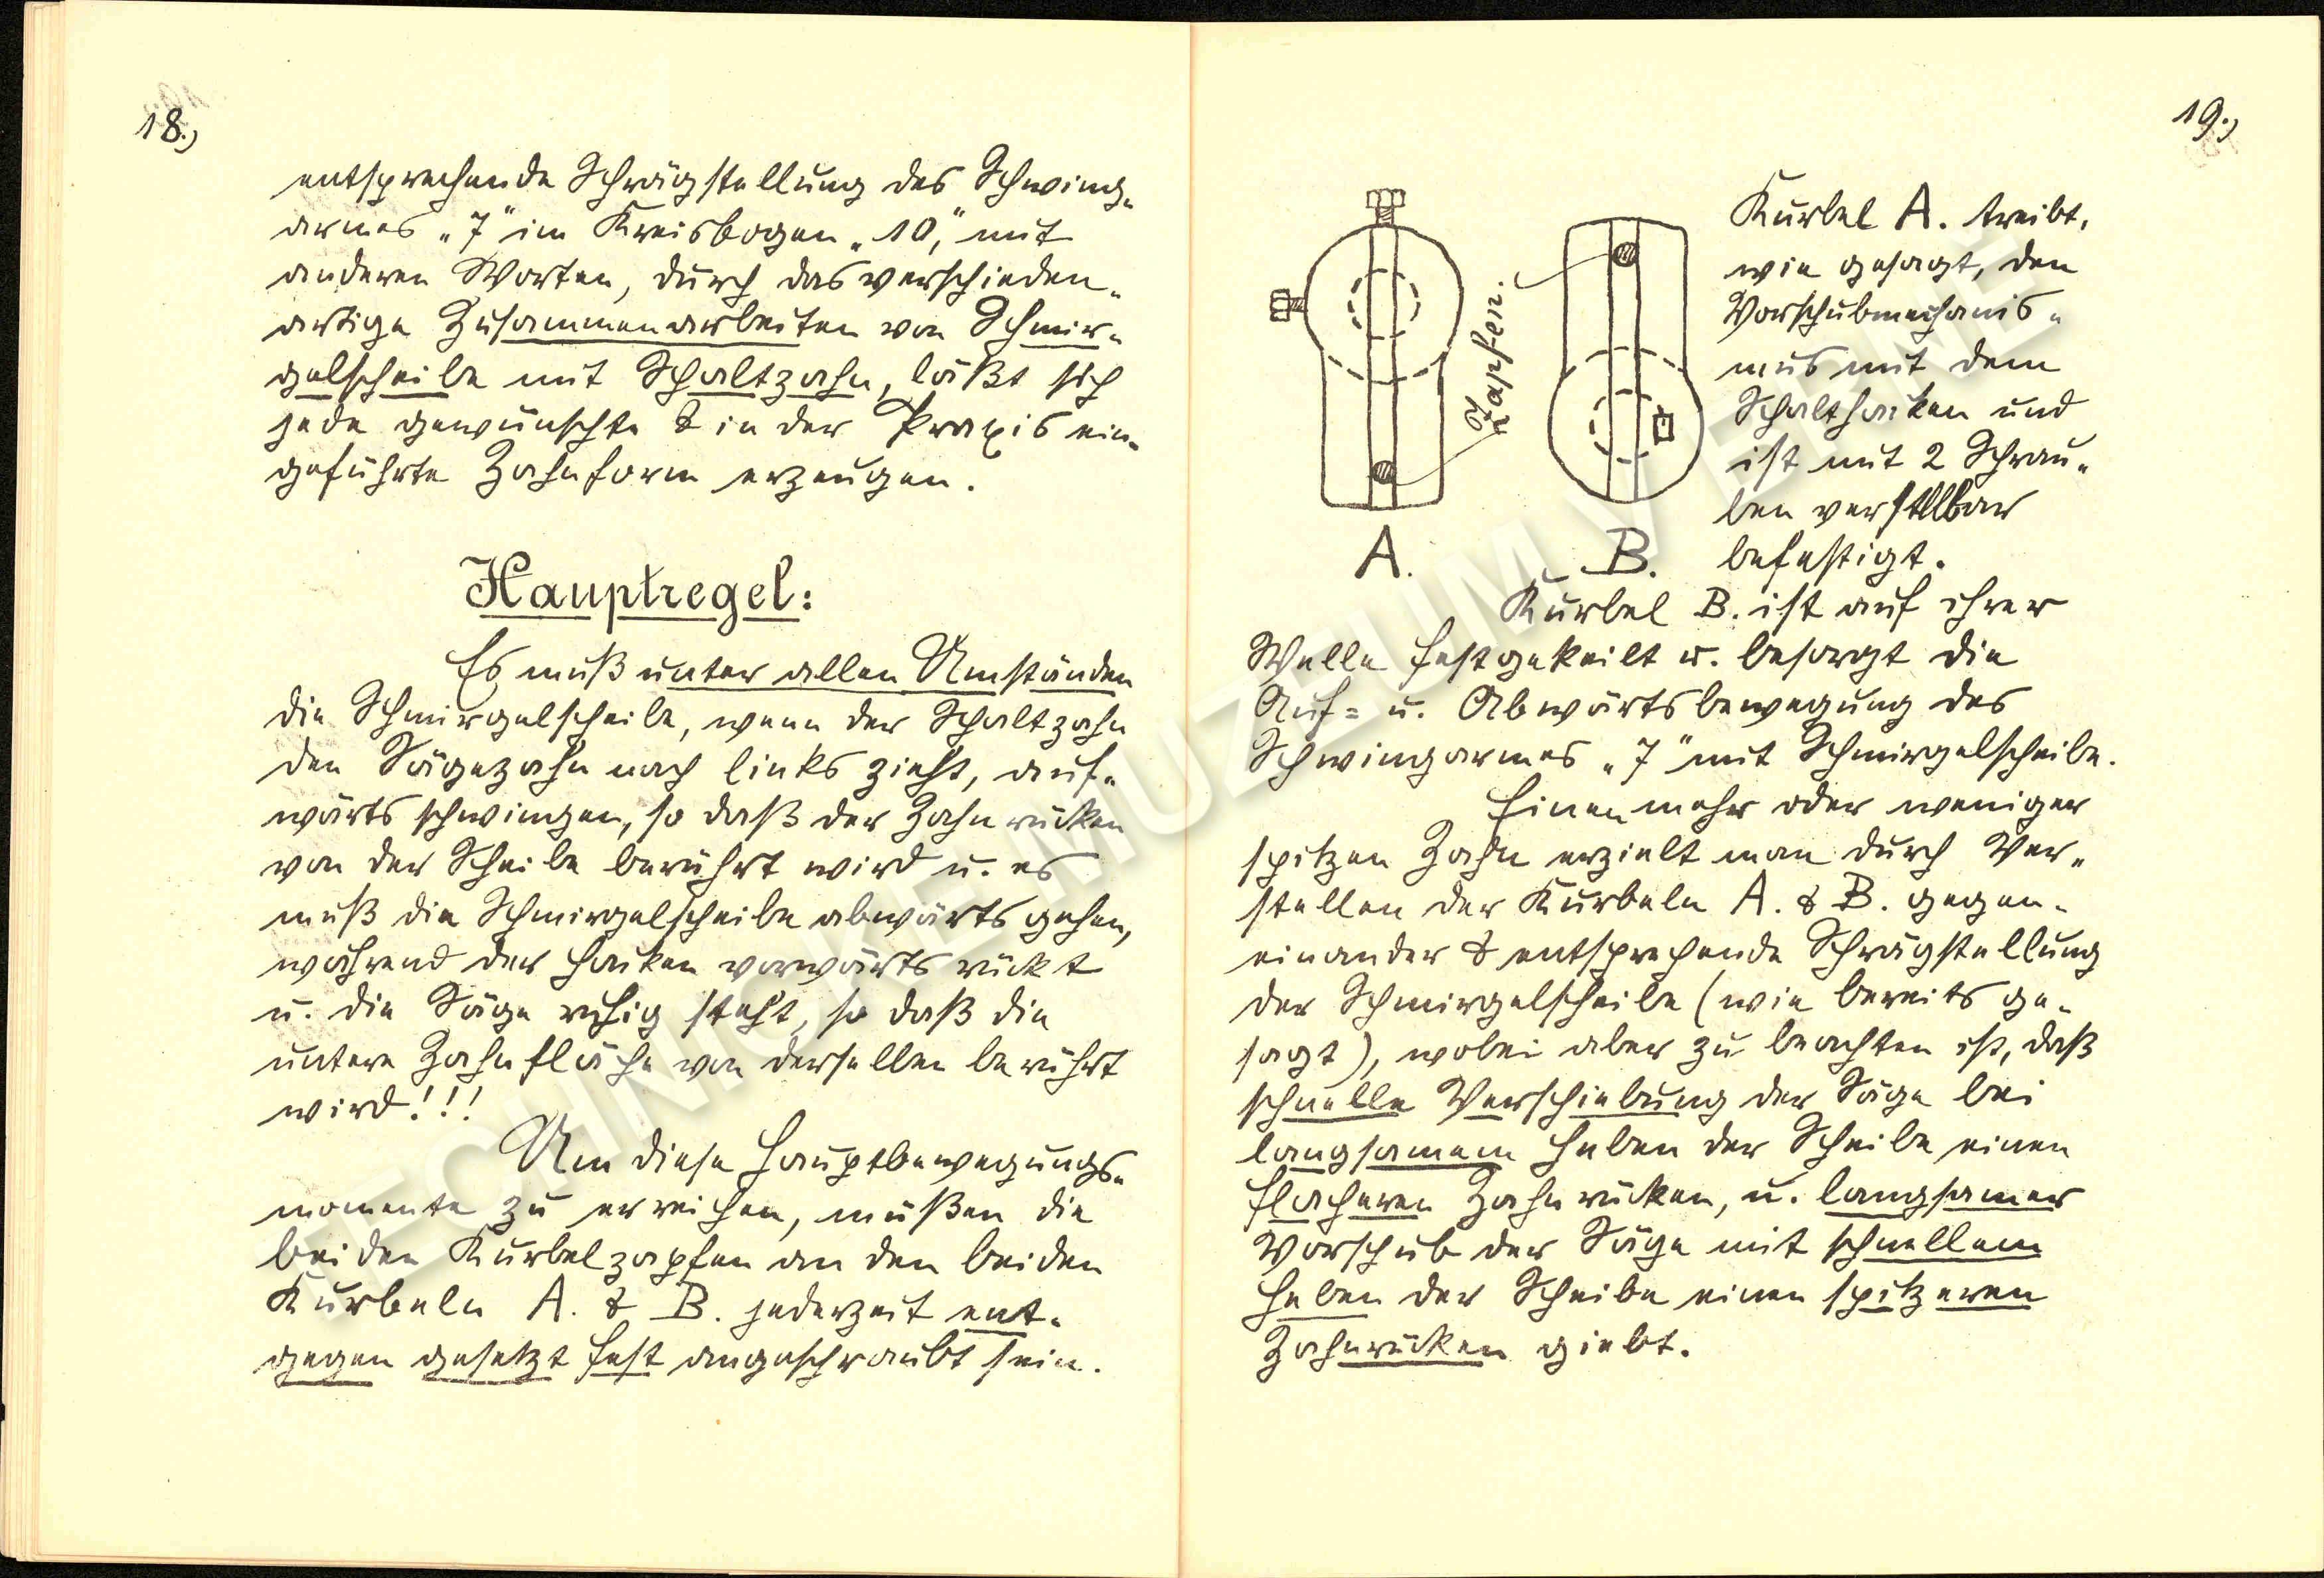 18.)
entsprechende Schrägstellung des Schwing-
armes „7" im Kreisbogen „10", mit
anderen Worten, durch das verschieden-
artige Zusammenarbeiten von Schmir-
gelscheibe mit Schaltzahn, läßt sich
jede gewünschte & in der Praxis ein-
geführte Zahnform erzeugen.
Hauptregel:
Es muß unter allen Umständen
die Schmirgelscheibe, wenn der Schaltzahn
den Sägezahn nach links zieht, auf-
wärts schwingen, so daß der Zahnrücken
von der Scheibe berührt wird u. es
muß die Schmirgelscheibe abwärts gehen,
während der Haken vorwärts rückt
u. die Säge ruhig steht, so daß die
untere Zahnfläche von derselben berührt
wird!!!
Um diese Hauptbewegungs-
momente zu erreichen, müßen die
beiden Kurbelzapfen an den beiden
Kurbeln A. & B. jederzeit ent-
gegen gesetzt fest angeschraubt sein.
19.)
Zapfen.
A.
B.
Kurbel A. treibt,
wie gesagt, den
Vorschubmechanis-
mus mit dem
Schalthaken und
ist mit 2 Schrau-
ben verstllbar
befestigt.
Kurbel B. ist auf ihrer
Welle festgekeilt u. besorgt die
Auf= u. Abwärtsbewegung des
Schwingarmes „7" mit Schmirgelscheibe.
Einen mehr oder weniger
spitzen Zahn erzielt man durch Ver-
stellen der Kurbeln A. & B. gegen-
einander & entsprechende Schrägstellung
der Schmirgelscheibe (wie bereits ge-
sagt), wobei aber zu beachten ist, daß
schnelle Verschiebung der Säge bei
langsamem Heben der Scheibe einen
flacheren Zahnrücken, u. langsamer
Vorschub der Säge mit schnellem
Heben der Scheibe einen spitzeren
Zahnrücken giebt.